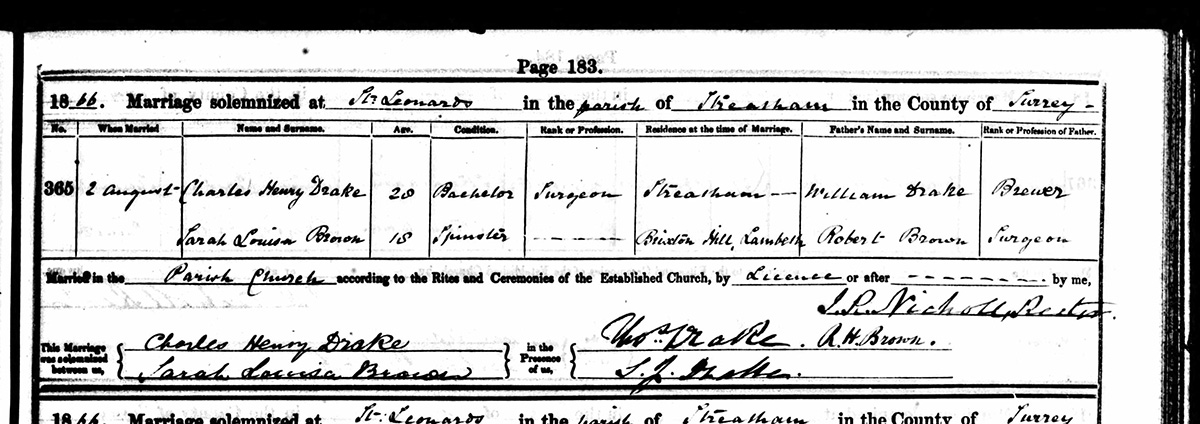 Page 183.
1866. Marriage solemnized at St. Leonards in the parish of Streatham in the County of Surrey
No. When Married Name and Surname. Age. Condition. Rank or Profession. Residence at the time of Marriage. Father's Name and Surname. Rank or Profession of Father.
365 2 August Charles Henry Drake 28 Bachelor Surgeon Streatham William Drake Brewer
Sarah Louisa Brown 18 Spinster Brixton Hill, Lambeth Robert Brown Surgeon
Married in the Parish Church according to the Rites and Ceremonies of the Established Church, by Licence or after by me,
J. R. Nicholl, Rector
This Marriage was solemnized between us, Charles Henry Drake in the Presence of us, Thos. Drake. R. H. Brown.
Sarah Louisa Brown S. J. Drake.
1866. Marriage solemnized at St. Leonards in the parish of Streatham in the County of Surrey